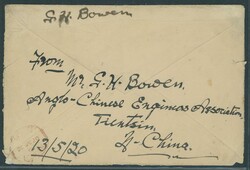 G. H. Bowen
From
Mr. G. H. Bowen.
Anglo-Chinese Engineers Association,
Tientsin,
N-China.
13/5/20